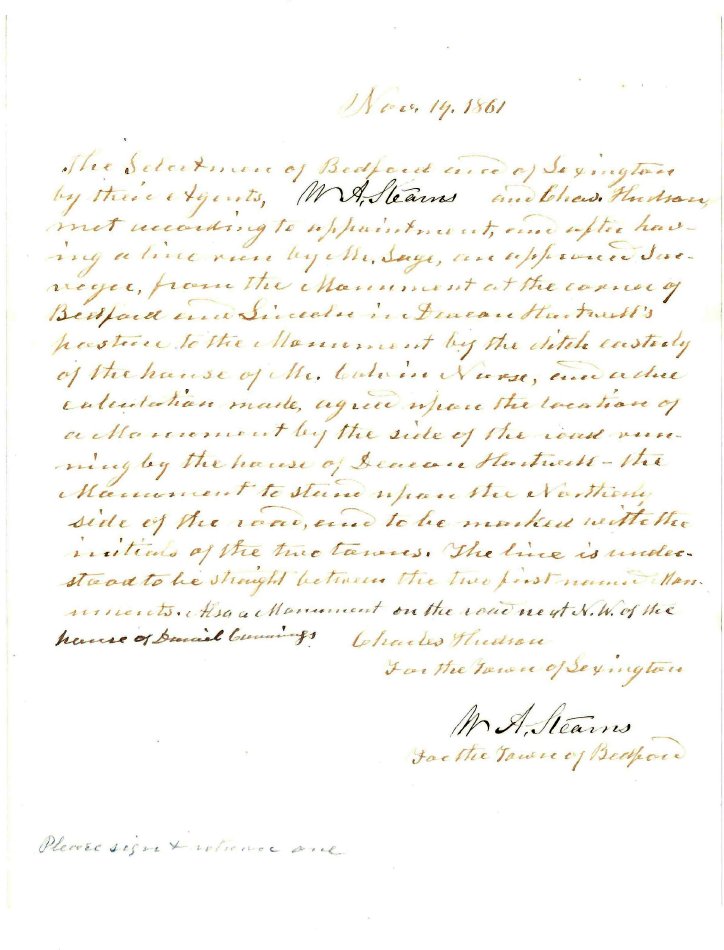 Nov. 19. 1861
The Selectmen of Bedford and of Lexington
by their Agents, W A. Stearns and Chas. Hudson,
met according to appointment, and after hav-
ing a line run by Mr. Sage, an approved Sur-
veyor, from the Monument at the corner of
Bedford and Lincoln in Deacon Hartwell's
pasture to the Monument by the ditch easterly
of the house of Mr. Calvin Nurse, and a due
calculation made, agreed upon the location of
a Monument by the side of the road run-
ning by the house of Deacon Hartwell – the
Monument to stand upon the Northerly
side of the road, and to be marked with the
initials of the two towns. The line is under-
stood to be straight between the two first named Mon-
uments. Also a Monument on the road next N.W. of the
house of Daniel Cummings
Charles Hudson
For the Town of Lexington
W A. Stearns
For the Town of Bedford
Please sign & return one